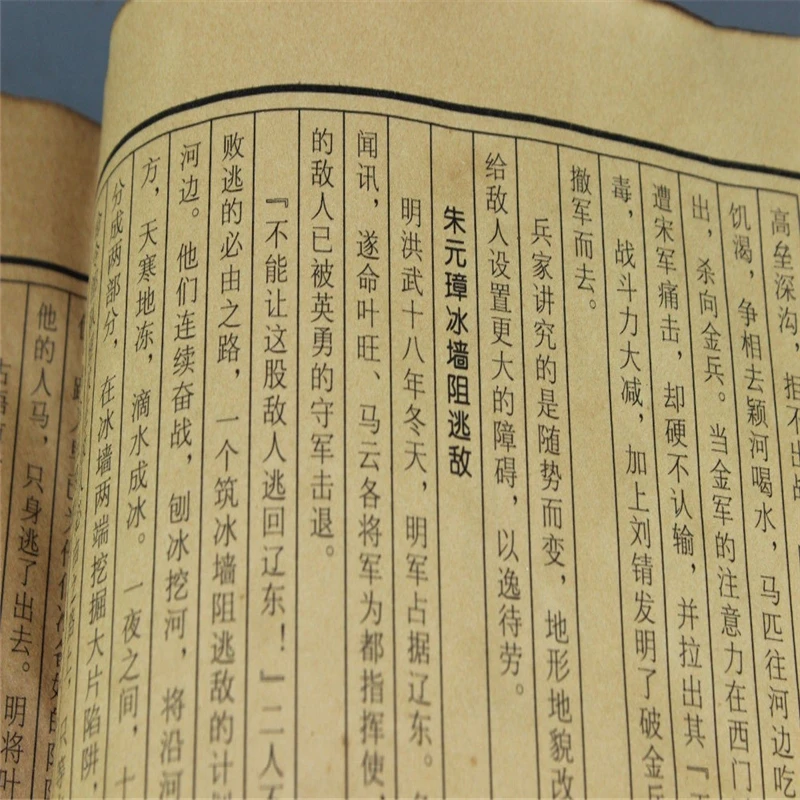 高垒深沟，拒不出战
饥渴，争相去颖河喝水，马匹往河边吃
出，杀向金兵。当金军的注意力在西门
遭宋军痛击，却硬不认输，并拉出其『
毒，战斗力大减，加上刘锜发明了破金兵
撤军而去。
兵家讲究的是随势而变，地形地貌改
给敌人设置更大的障碍，以逸待劳。
朱元璋冰墙阻逃敌
明洪武十八年冬天，明军占据辽东。
闻讯，遂命叶旺、马云各将军为都指挥使，
的敌人已被英勇的守军击退。
『不能让这股敌人逃回辽东！』二人
败逃的必由之路，一个筑冰墙阻逃敌的计
河边。他们连续奋战，刨冰挖河，将沿河
方，天寒地冻，滴水成冰。一夜之间，十
分成两部分，在冰墙两端挖掘大片陷阱，
他的人马，只身逃了出去。明将叶